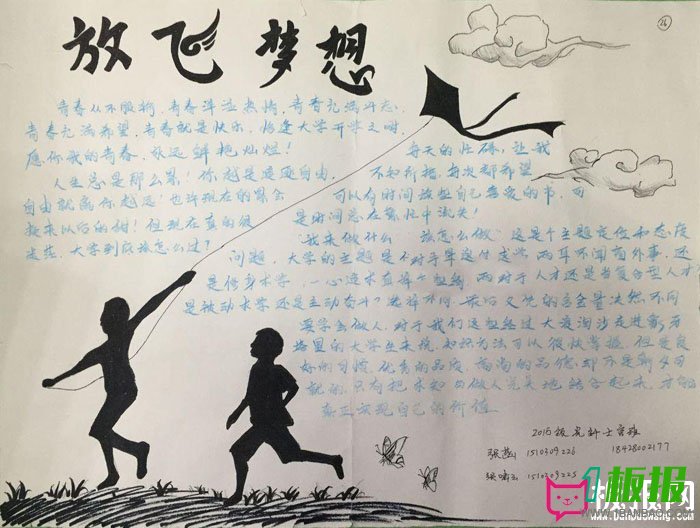 26
放飞梦想
青春从不服输，青春洋溢热情，青春充满斗志，
青春充满希望，青春就是快乐，恰逢大学开学之时，
愿你我的青春，永远鲜艳灿烂！
每天的忙碌，让我
人生总是那么累！你越是追逐自由，
不知所措，每次都希望
自由就离你越远！也许现在的累会
可以有时间读些自己喜爱的书，可
换来以后的甜！但现在真的很
是时间总在繁忙中流失！
迷茫，大学到底该怎么过？
"我来做什么 该怎么做"这是个主题定位和态度
问题，大学的主题是
两耳不闻窗外事，还
是修身求学，一心追求真择个性
对于人才还是当复合型人才
是被动求学还是主动奋斗？选择不同，最后文凭的含金量决然不同
要学会做人，对于我们这些经过大浪淘沙走进
的大学生来说，知识方法可以很快掌握，但是良
好的习惯，优秀的品质，高尚的品德，却不是朝夕可
就的，只有把求知与做人完美地结合起来，才能
真正实现自己的价值
2015级
张燕 1510309226 18428002177
张 1510309225
板报